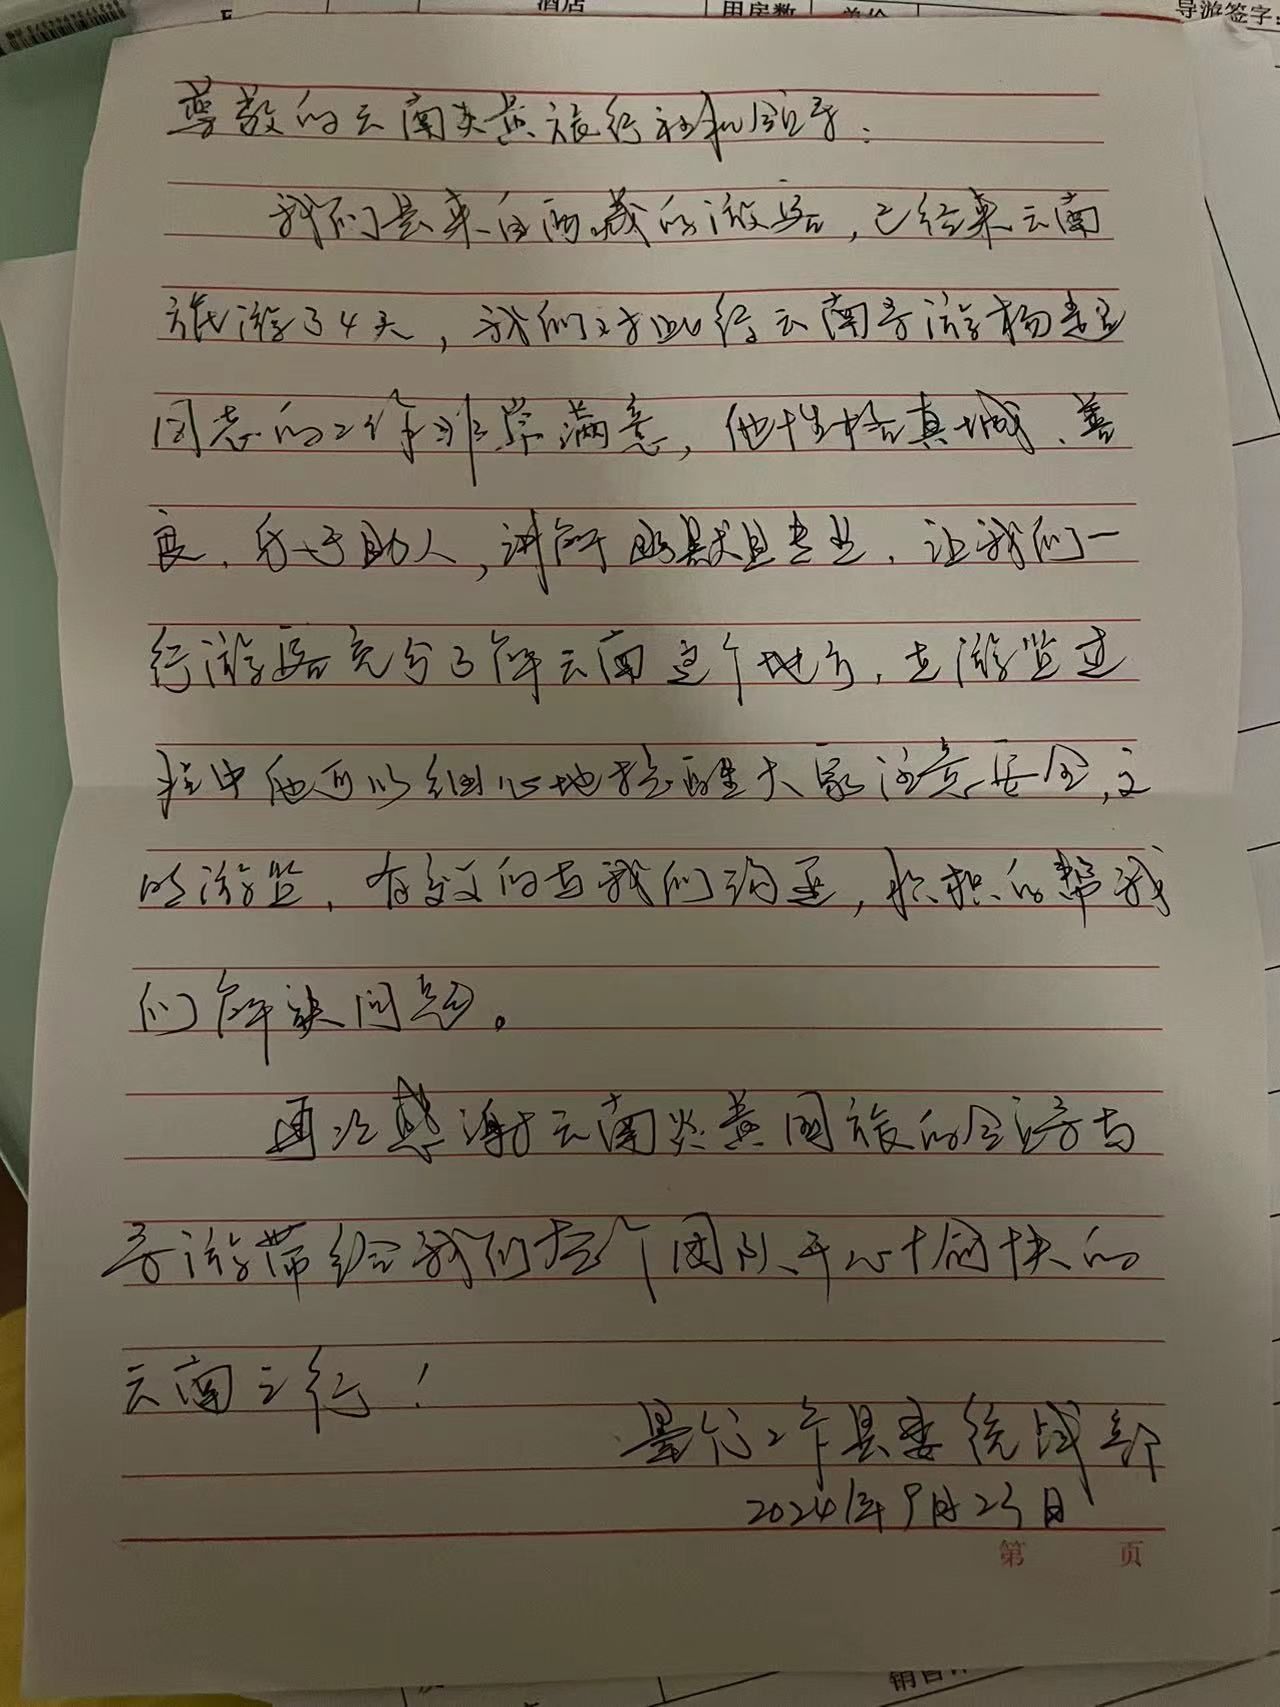 酒店 用房数 单价 导游签字:
尊敬的云南炎黄旅行社和领导:
我们是来自西藏的游客,已经来云南
旅游了4天,我们对此行云南导游杨超
同志的工作非常满意,他性格真诚、善
良、乐于助人,讲解幽默且专业,让我们一
行游客充分了解云南这个地方,在游览过
程中他可以细心地提醒大家注意安全,文
明游览,有效的与我们沟通,积极的帮我
们解决问题。
再次感谢云南炎黄国旅的领导与
导游带给我们整个团队开心愉快的
云南之行!
墨竹工卡县委统战部
2024年9月23日
第 页
销售